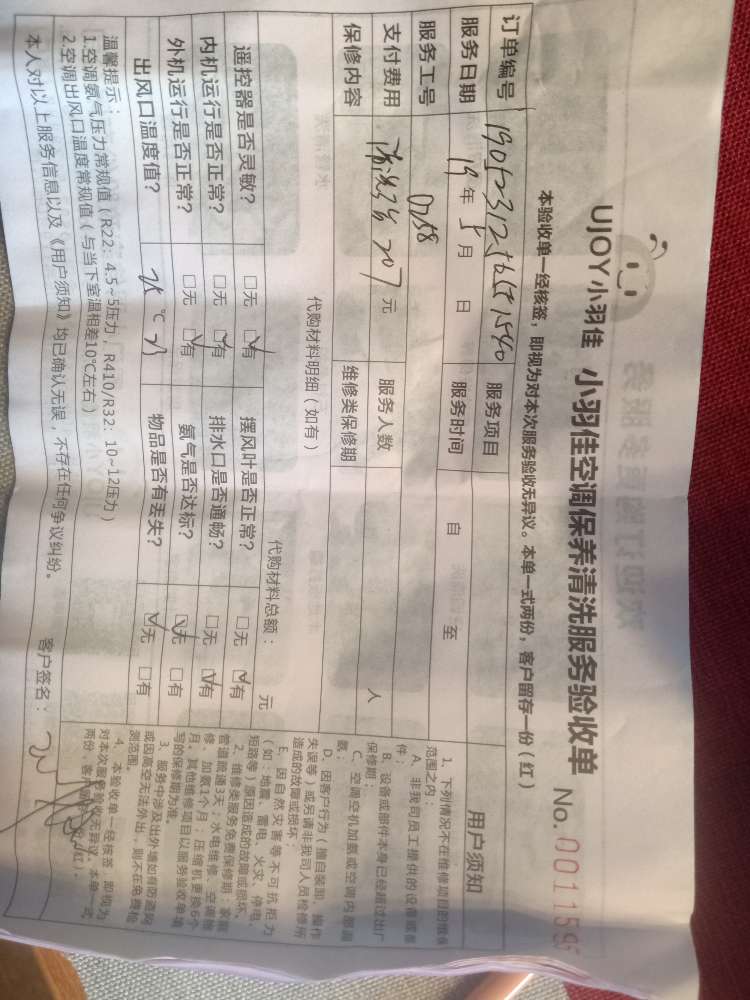 UJOY小羽佳 小羽佳空调保养清洗服务验收单 No. 001159
本验收单一经核签，即视为对本次服务验收无异议。本单一式两份，客户留存一份（红）
订单编号 服务项目
服务日期 19 年 5 月 日 服务时间 自 至
服务工号 0758
支付费用 207 元 服务人数 人
保修内容 维修类保修期
代购材料明细（如有）
代购材料总额： 元
遥控器是否灵敏？ □无 □有 摆风叶是否正常？ □无 □有
内机运行是否正常？ □无 □有 排水口是否通畅？ □无 □有
外机运行是否正常？ □无 □有 氨气是否达标？ □无 □有
出风口温度值？ ℃ 物品是否有丢失？ □无 □有
温馨提示：
1.空调氨气压力常规值（R22：4.5~5压力，R410/R32：10~12压力）
2.空调出风口温度常规值（与当下室温相差10℃左右）
本人对以上服务信息以及《用户须知》均已确认无误，不存在任何争议纠纷。 客户签名：
用户须知
1、下列情况不在维修项目的维保
范围之内：
A、非我司员工提供的设备或部
件；
B、设备或部件本身已经超过出厂
保修期；
C、空调空机加氨或空调内部漏
氨；
D、因客户行为（擅自装卸、操作
失误等）或另请非我司人员检修所
造成的故障或损坏；
E、因自然灾害等不可抗拒力
（如：地震、雷电、火灾、停电、
短路等）原因造成的故障或损坏。
2、维修类服务免费保修期：家庭
管道疏通3天；水电维修、空调维
修、加氨1个月；压缩机更换6个
月，其他维修项目以服务验收单填
写的保修期为准。
3、服务中涉及出外墙如有防盗网
或因高空无法外出，则不在免费检
测范围。
4、本验收单一经核签，即视为
对本次服务验收无异议。本单一式
两份，客户留存一份（红）。